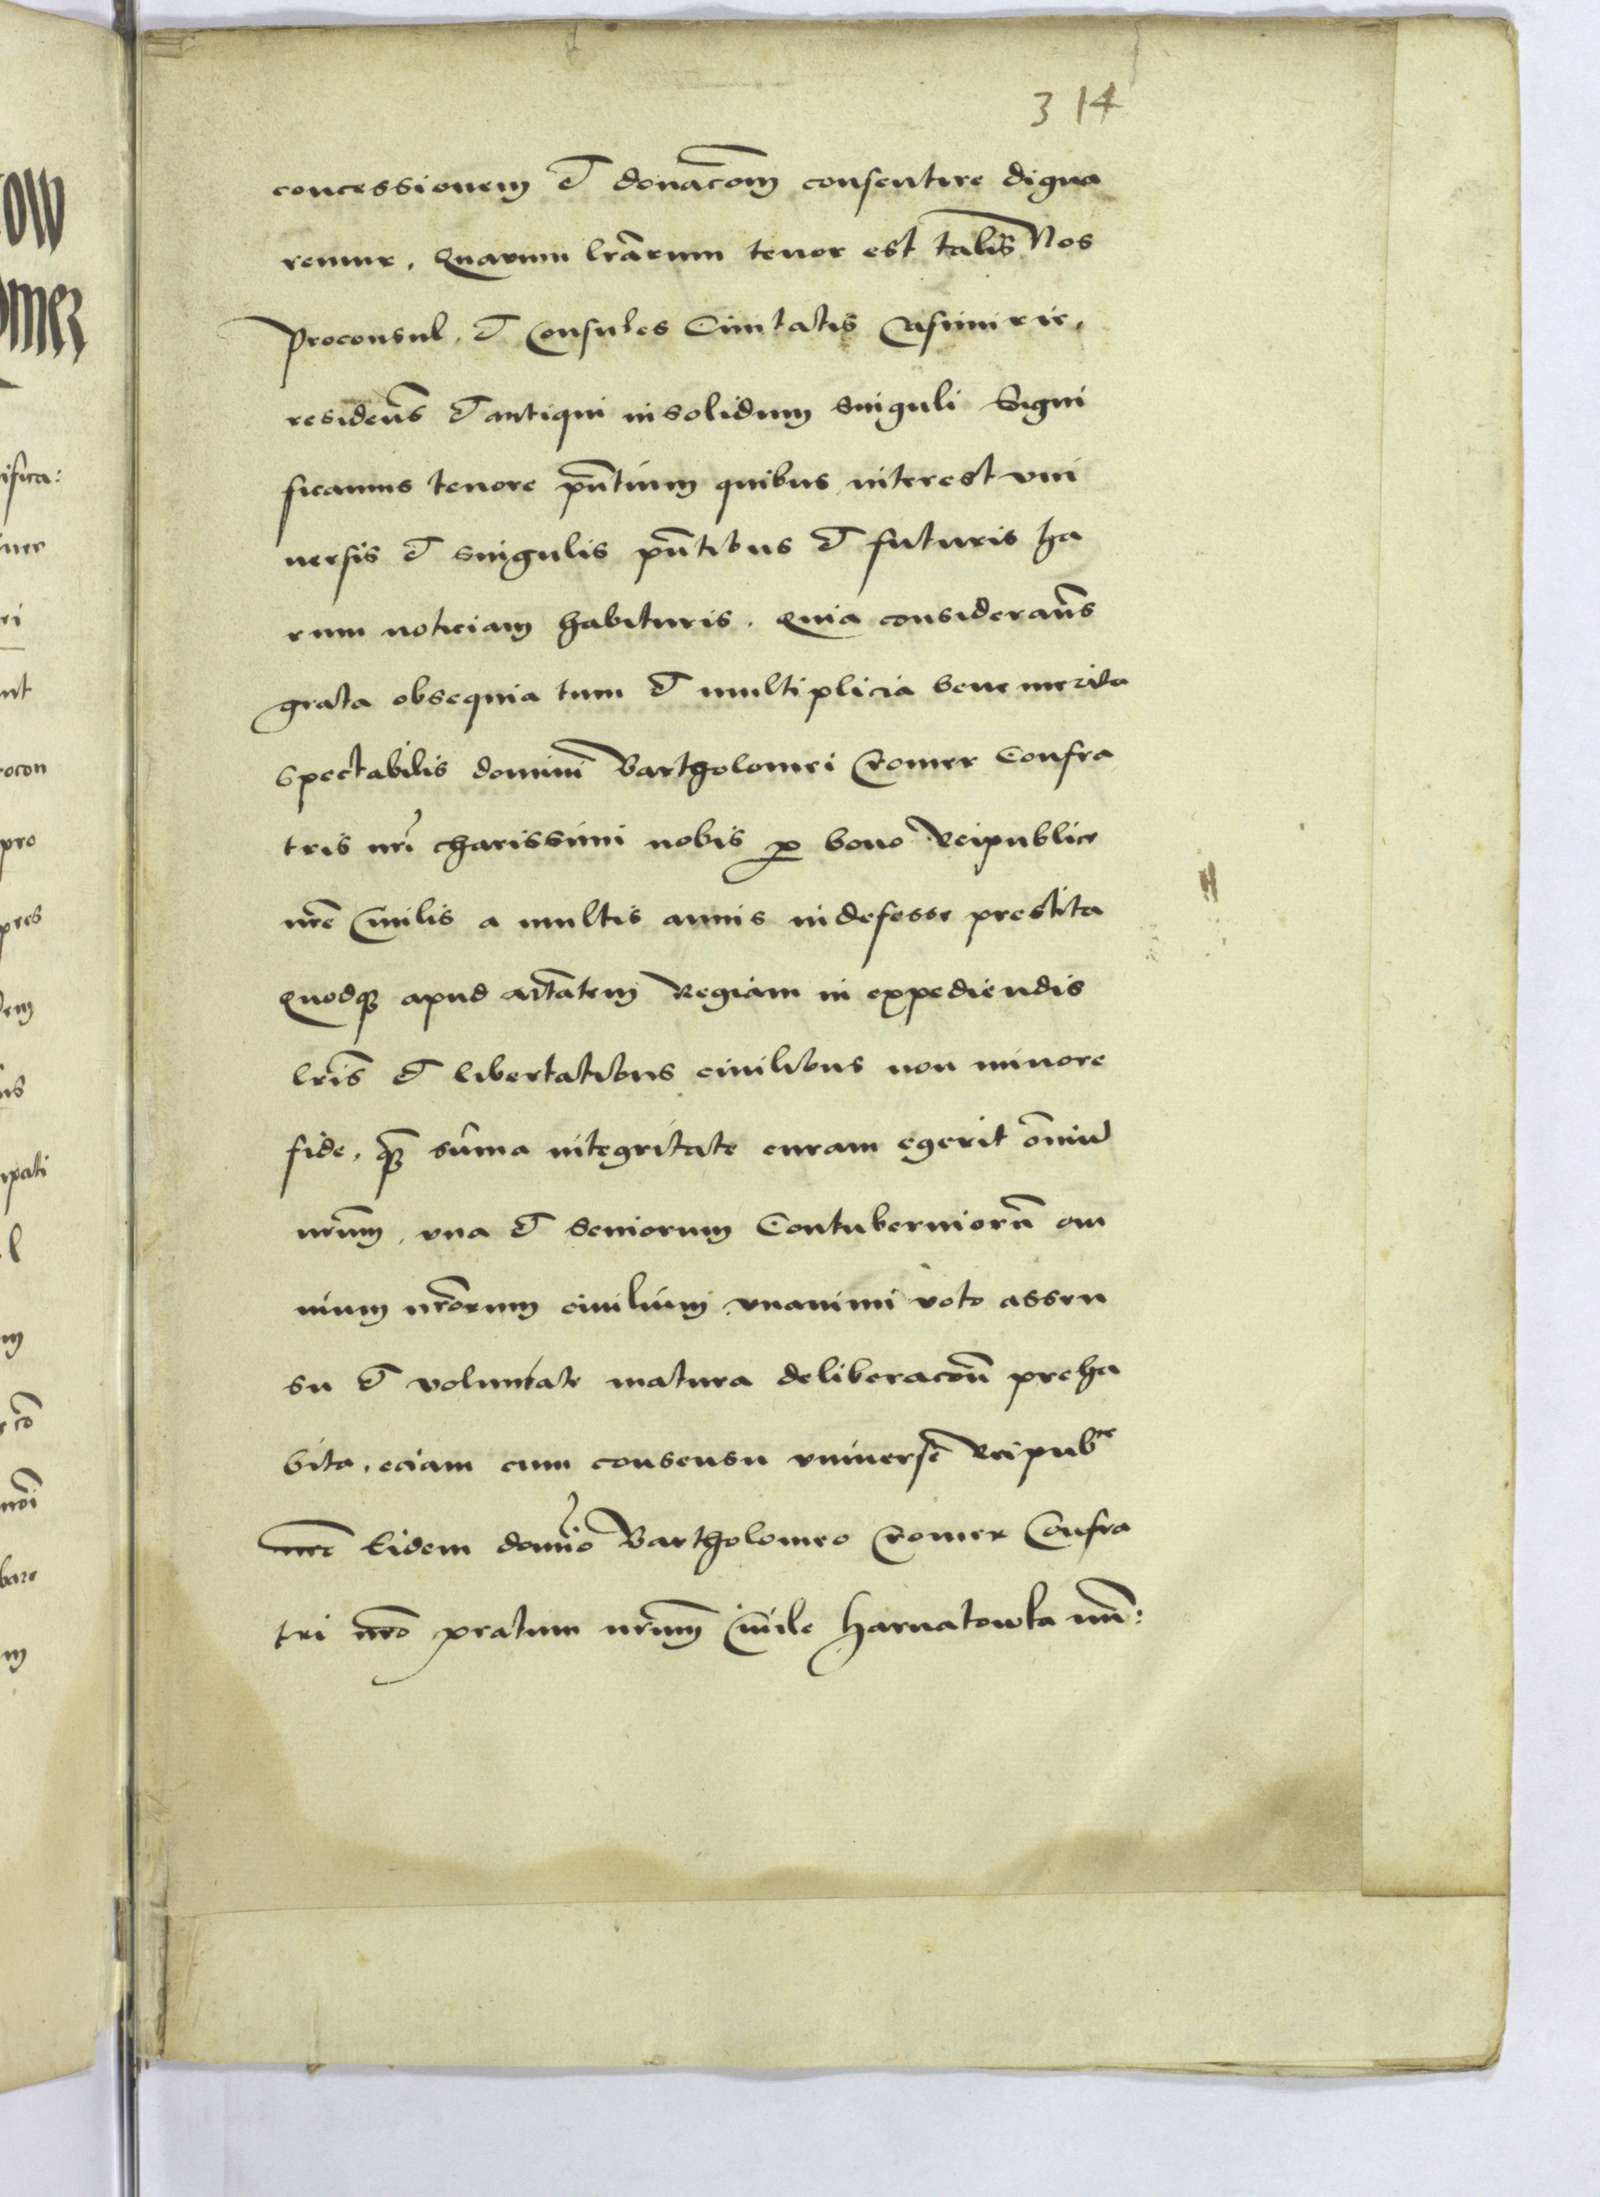 314
concessionem et donac̄om consentire digna
remur. Quarum lr̄arum tenor est talis Nos
Proconsul. et Consules Ciuitatis Casimirie.
residen̄s et antiqui insolidum singuli Signi
ficamus tenore pn̄tium quibus interest vni
uersis et singulis pn̄tibus et futuris ha
rum noticiam habituris. Quia consideran̄s
grata obsequia tum et multiplicia bene merita
Spectabilis domini Bartholomei Cromer Confra
tris nr̄i charissimi nobis pro bono Reipublice
nr̄e Ciuilis a multis annis indefesse prestita
Quodque apud Mtātem Regiam in expediendis
lr̄is et libertatibus ciuilibus non minore
fide. quam sum̄a integritate curam egerit om̄iū
nr̄um. vna et Seniorum Contuberniorū om
nium nr̄orum ciuilium vnanimi voto assen
su et voluntate matura deliberacōn̄ preha
bita. eciam cum consensu vniverse Reipubce
nr̄e Eidem domino Bartholomeo Cromer Confra
tri nr̄o pratum nr̄um Ciuile Harnatowka
ow
omer
ifica:
ri
nt
rocon
pro
pres
dem
ipati
l
m
bare
m